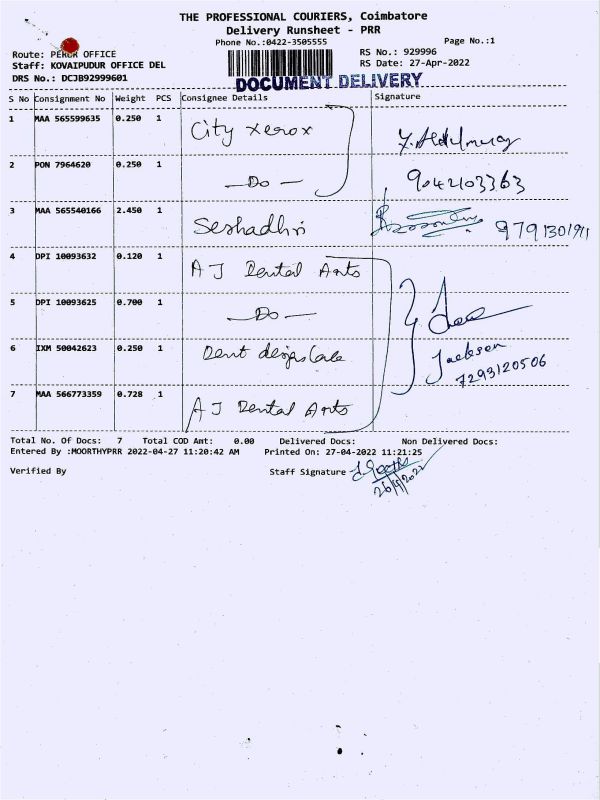 THE PROFESSIONAL COURIERS, Coimbatore
Delivery Runsheet - PRR
Phone No.:0422-3505555 Page No.:1
Route: PERUR OFFICE RS No.: 929996
Staff: KOVAIPUDUR OFFICE DEL RS Date: 27-Apr-2022
DRS No.: DCJB92999601 DOCUMENT DELIVERY
S No Consignment No Weight PCS Consignee Details Signature
1 MAA 565599635 0.250 1 City Xerox
2 PON 7964620 0.250 1 —Do— 9042103363
3 MAA 565540166 2.450 1 Seshadhri 9791301911
4 DPI 10093632 0.120 1 A J Dental Arts
5 DPI 10093625 0.700 1 —Do—
6 IXM 50042623 0.250 1 Dent Jackson
7293120506
7 MAA 566773359 0.728 1 A J Dental Arts
Total No. Of Docs: 7 Total COD Amt: 0.00 Delivered Docs: Non Delivered Docs:
Entered By :MOORTHYPRR 2022-04-27 11:20:42 AM Printed On: 27-04-2022 11:21:25
Verified By Staff Signature
26/4/2022